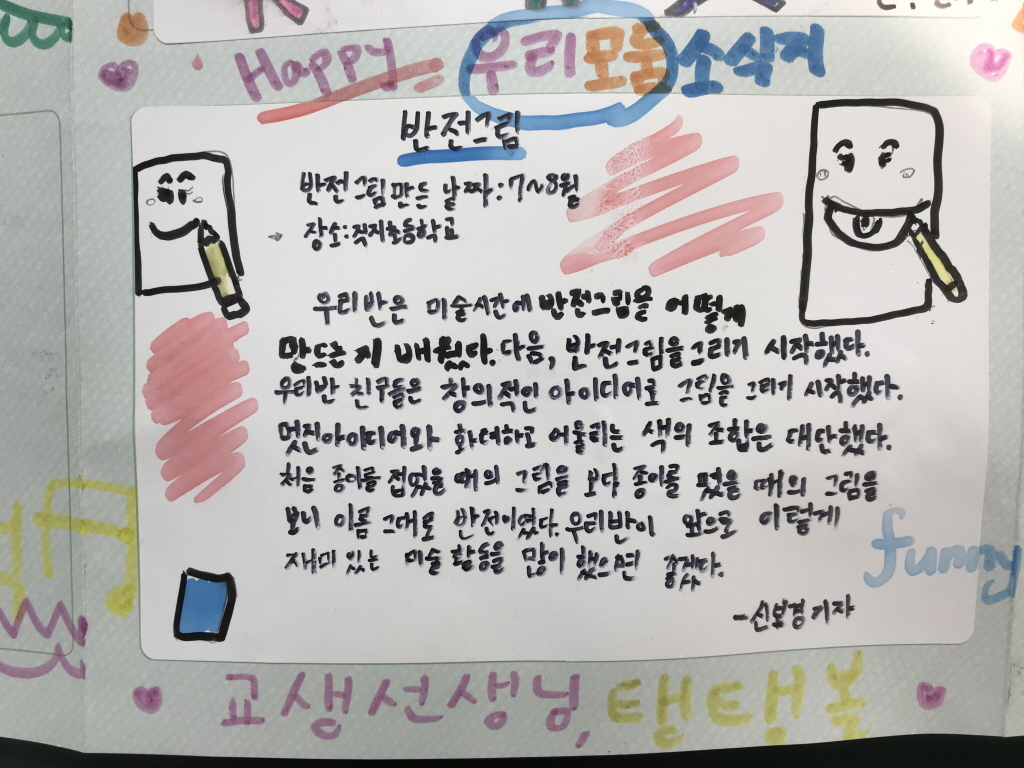 Happy 우리모둠소식지
반전그림
반전그림만든 날짜:7~8월
장소:직지초등학교
우리반은 미술시간에 반전그림을 어떻게
만드는지 배웠다. 다음, 반전그림을 그리기 시작했다.
우리반 친구들은 창의적인 아이디어로 그림을 그리기 시작했다.
멋진아이디어와 화려하고 어울리는 색의 조합은 대단했다.
처음 종이를 접었을때의 그림을 보다 종이를 폈을 때의 그림을
보니 이름 그대로 반전이였다. 우리반이 앞으로 이렇게
재미있는 미술 활동을 많이 했으면 좋겠다.
funny
-신보경기자
교생선생님, 탱탱볼